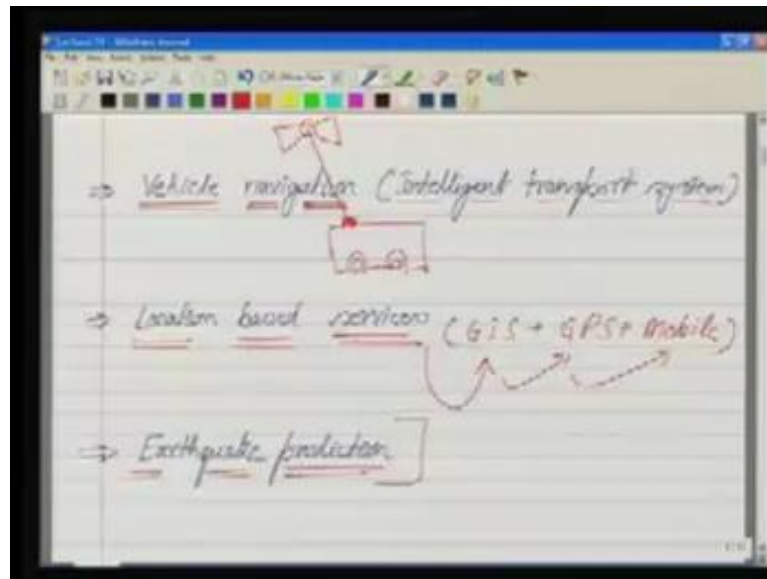 ⇒ Vehicle navigation (Intelligent transport system)
⇒ Location based services (GIS + GPS + Mobile)
⇒ Earthquake prediction]